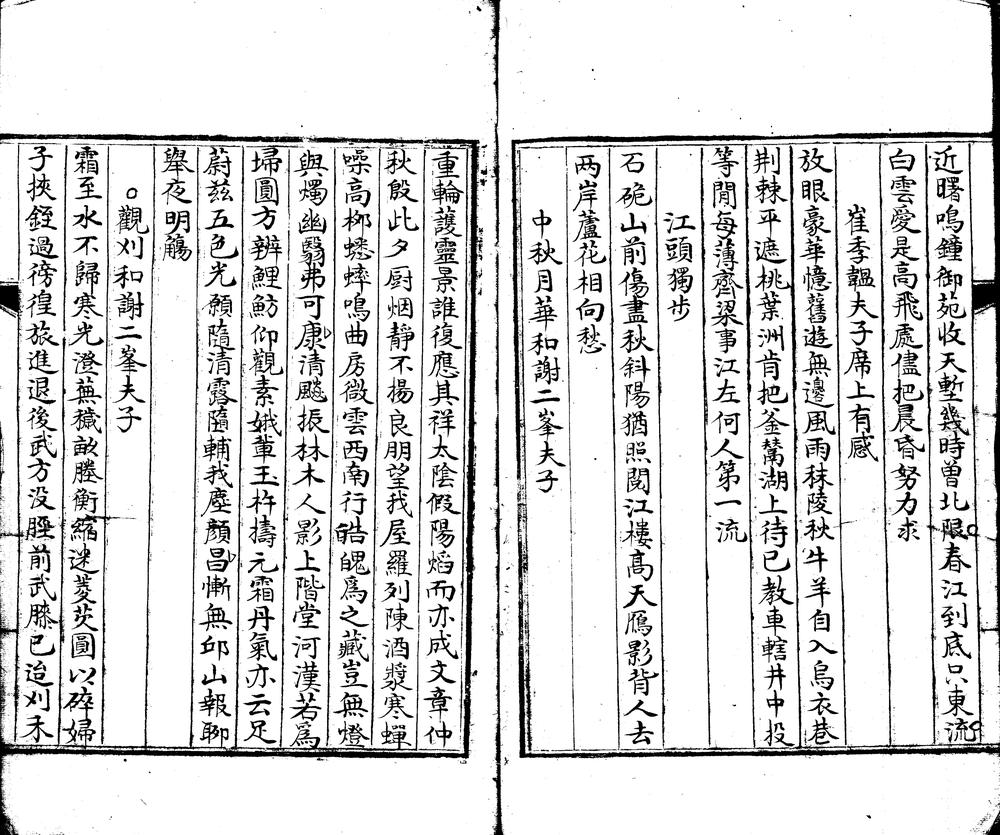 近曙鳴鍾御苑收天塹幾時曾北限春江到底只東流
白雲愛是高飛處儘把晨昏努力求
崔季韞夫子席上有感
放眼豪華憶舊遊無邊風雨秣陵秋牛羊自入烏衣巷
荆棘平遮桃葉洲肯把釜鬵湖上待已教車轄井中投
等閒每薄齊梁事江左何人第一流
江頭獨步
石硊山前傷盡秋斜陽猶照閱江樓高天鴈影背人去
两岸蘆花相向愁
中秋月華和謝二峯夫子
重輪護靈景誰復應其祥太陰假陽熖而亦成文章仲
秋殷此夕厨烟静不揚良朋望我屋羅列陳酒漿寒蟬
噪高柳蟋蟀鳴曲房微雲西南行皓魄爲之藏豈無燈
與燭幽翳弗可康清飈振林木人影上階堂河漢若爲
埽圓方辨鯉魴仰觀素娥軰玉杵擣元霜丹氣亦云足
蔚兹五色光願隨清露隨輔我塵顔昌慚無邱山報聊
舉夜明觴
○觀刈和謝二峯夫子
霜至水不歸寒光澄蕪穢畝塍衡縮迷菱芡圓以碎婦
子挾銍過徬徨旅進退後武方没脛前武膝已迨刈禾